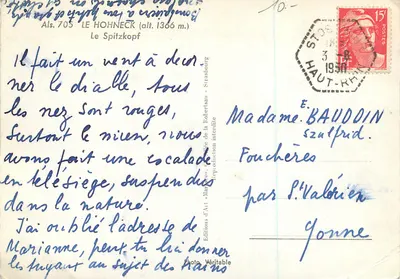 10-
Als. 705 LE HOHNECK (alt. 1366 m.)
Le Spitzkopf
Il fait un vent à décor
ner le diable, tous
les nez sont rouges,
surtout le mien, nous
avons fait une escalade
en télésiège, suspendus
dans la nature.
J'ai oublié l'adresse de
Marianne, peux-tu lui donner
les tuyaux au sujet des trains
Editions d'Art
Strasbourg
Reproduction interdite
Photo Véritable
15F
3-8
1950
HAUT-RHIN
Madame E. BAUDOIN
Fouchères
par St Valérien
Yonne